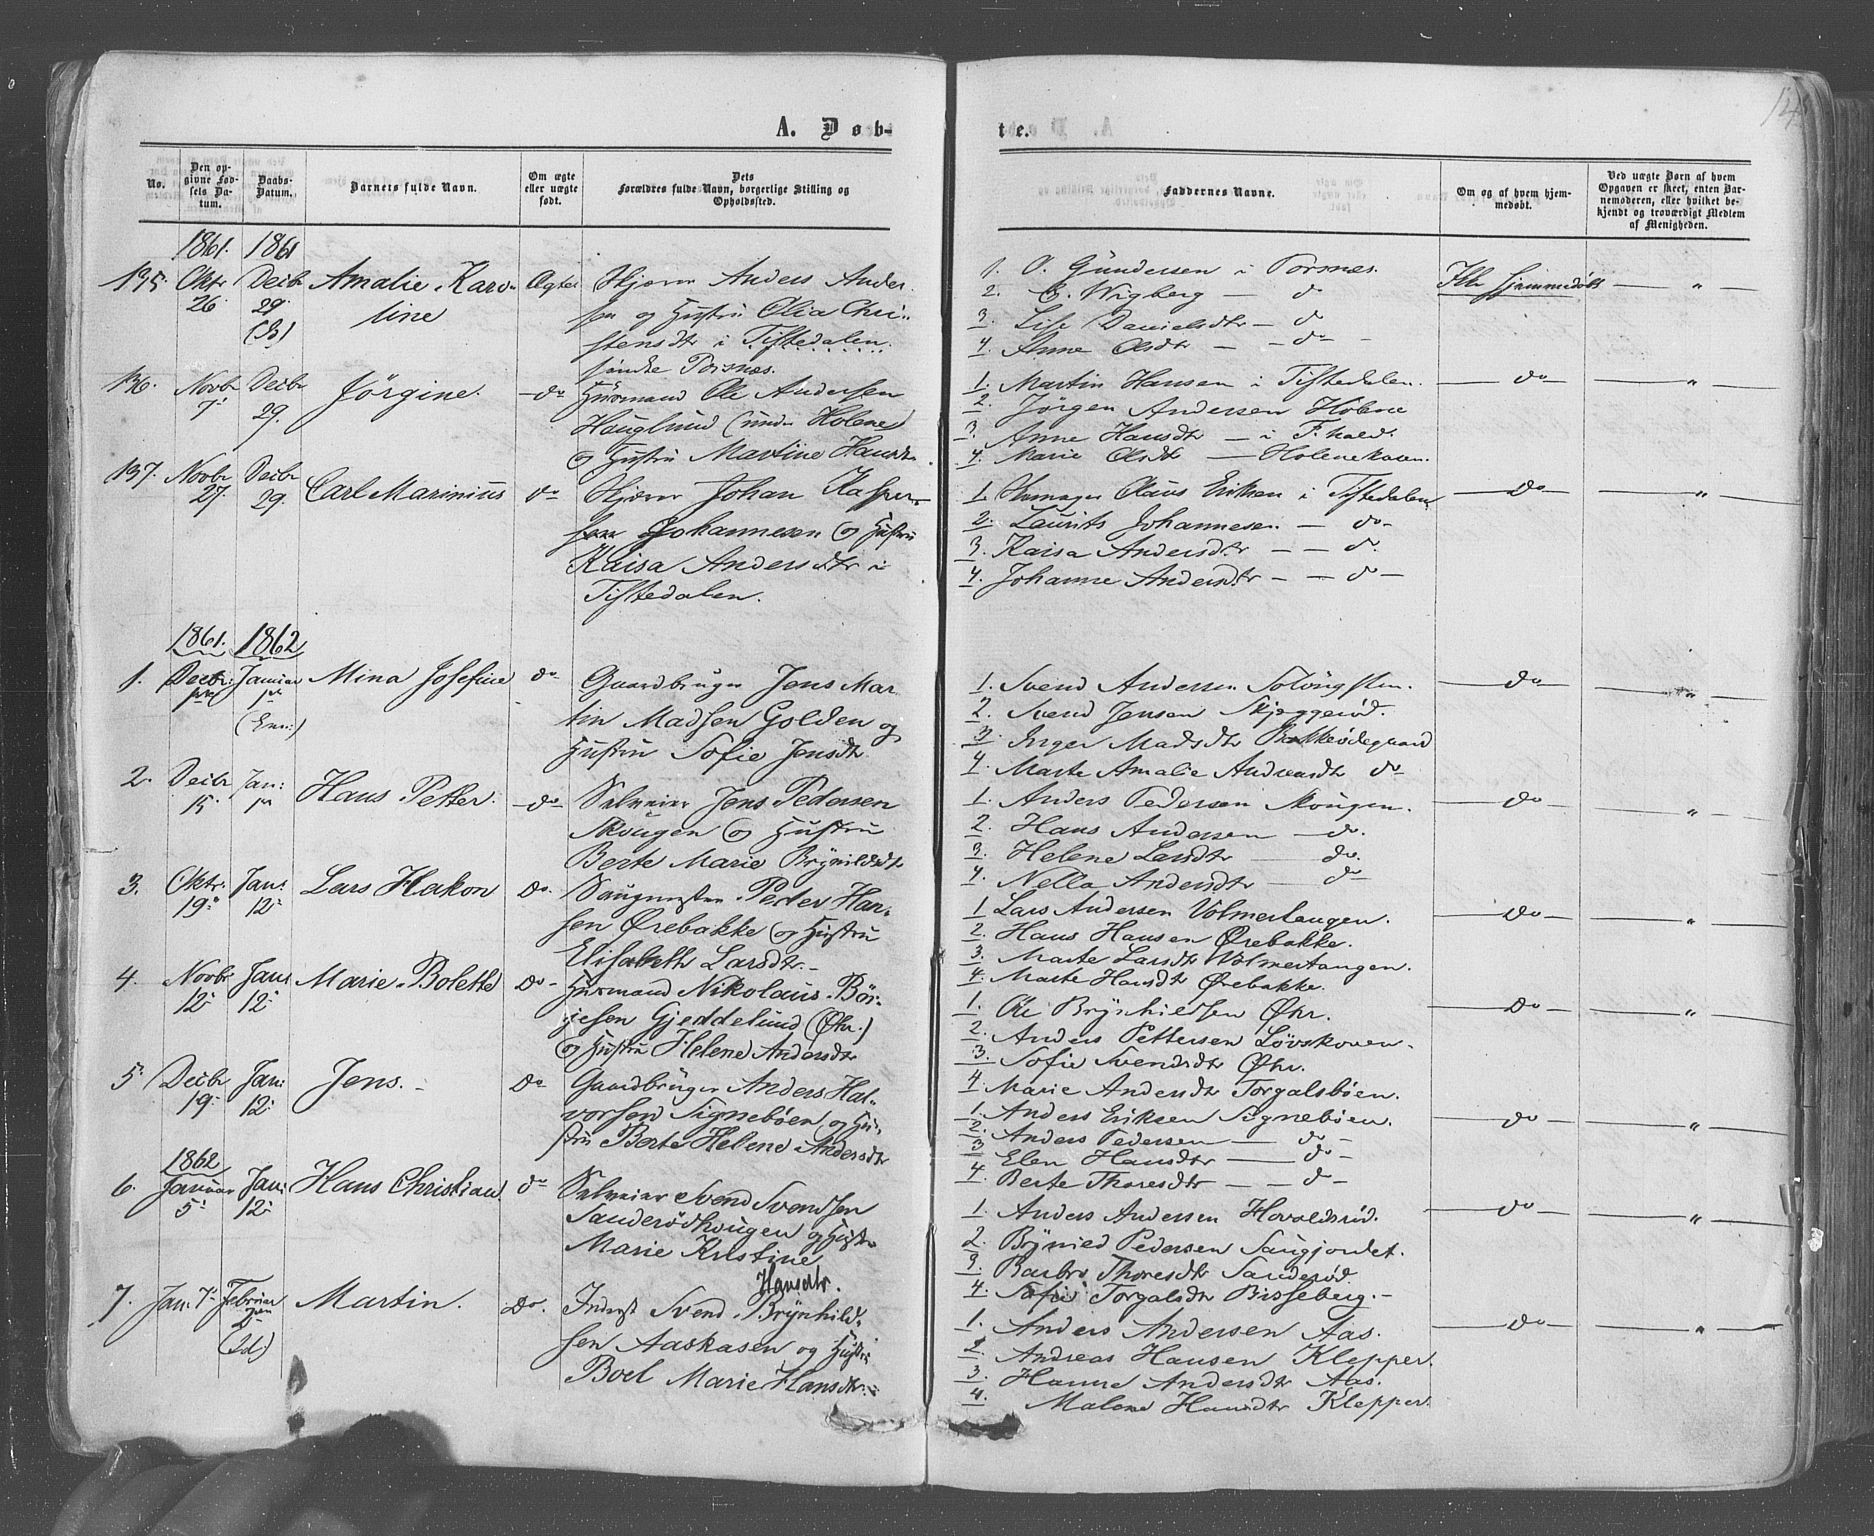 14
A. Døb-
te.
No.
Den op-
givne Fød-
sels Da-
tum.
Daabs-
Datum.
Barnets fulde Navn.
Om ægte
eller uægte
født.
Dets
Forældres fulde Navn, borgerlige Stilling og
Opholdssted.
Faddernes Navne.
Om og af hvem hjem-
medøbt.
Ved uægte Børn af hvem
Opgaven er skeet, enten Bar-
nemoderen, eller hvilket be-
kjendt og troværdigt Medlem
af Menigheden.
1861. 1861
135. Oktr 26 Decbr 29. Amalie Karo-
line
Ægte Anders Ander-
sen og Hustru Olia Chri-
stensdtr i Tistedalen
Torsnes.
1. O. Gundersen i Torsnes.
2. E. Wigberg — do
3. Lise Danielsdtr — do
4. Anne Olsdtr — do —
Ikke hjemmedøbt — „
136. Novbr 7 Decbr 29. Jörgine. do Huusmand Ole Andersen
Hauglund (under Holene
og Hustru Martine Hansdtr.
1. Martin Hansen i Tistedalen.
2. Jörgen Andersen Holene
3. Anne Hansdtr — i F.hald.
4. Marie Olsdtr — Holenekasen.
do — „
137. Novbr 27. Decbr 29. Carl Marinius do Johan Kasper-
sen Johannesen og Hustru
Kaisa Andersdtr i
Tistedalen.
1. Claus Eriksen i Tistedalen
2. Laurits Johannesen — do
3. Kaisa Andersdtr — do
4. Johanne Andersdtr — do —
do — „
1861. 1862
1. Decbr Januar Mina Josefine do Gaardbruger Jens Mar-
tin Madsen Golden og
Hustru Sofie Jensdtr
1. Svend Andersen
2. Svend Jensen Skjeggerød.
3. Inger Madsdtr Bakkeødegaard
4. Marte Amalie Andreasdtr do
do — „
2. Decbr 15 Jan: Hans Petter. do Selveier Jens Pedersen
Skougen og Hustru
Berte Marie Brynildsdtr
1. Anders Pedersen Skougen.
2. Hans Andersen — do.
3. Helene Larsdtr — do.
4. Nella Andersdtr — do
do — „
3. Oktr. 19 Jan: 12 Lars Hakon do. Peder Han-
sen Ørebakke og Hustru
Elisabeth Larsdtr.
1 Lars Andersen Volmertangen.
2. Hans Hansen Ørebakke.
3. Marte Larsdtr Volmertangen.
4. Marte Hansdtr Ørebakke.
do — „
4. Novbr 12 Jan: 12 Marie Bolette do Huusmand Nikolaus Bör-
jesen Gjeddelund (Øhr.)
og Hustru Helene Andersdtr
1. Ole Brynhildsen Øhr.
2. Anders Pettersen Løvskoven.
3. Sofie Svendsdtr Øhr.
4 Marie Andersdtr Torgalsbøen.
do — „
5 Decbr 19 Jan: 12 Jens. do Gaardbruger Anders Hal-
vorsen Signebøen og Hu-
stru Berte Helene Andersdtr
1. Anders Eriksen Signebøen.
2. Anders Pedersen — do
3 Elen Hansdtr — do
4. Berte Thoresdtr — do
do — „
1862
6. Januar 5 Jan: 12 Hans Christian do Selveier Svend Svendsen
Sanderødskougen og Hustru
Marie Kristine
Hansdtr.
1. Anders Andersen Hovaldsrød.
2. Brynild Pedersen Saugjordet.
3. Barbro Thoresdtr Sanderød.
4. Sofie Torgalsdtr Bisseberg.
do — „
7. Jan. 7 Februar 2 Martin. do. Inderst Svend Brynhild-
sen Aaskasen og Hustru
Boel Marie Hansdtr.
1. Anders Andersen Aas.
2. Andreas Hansen Klepper.
3. Hanne Andersdtr Aas.
4. Malene Hansdtr Klepper.
do — „